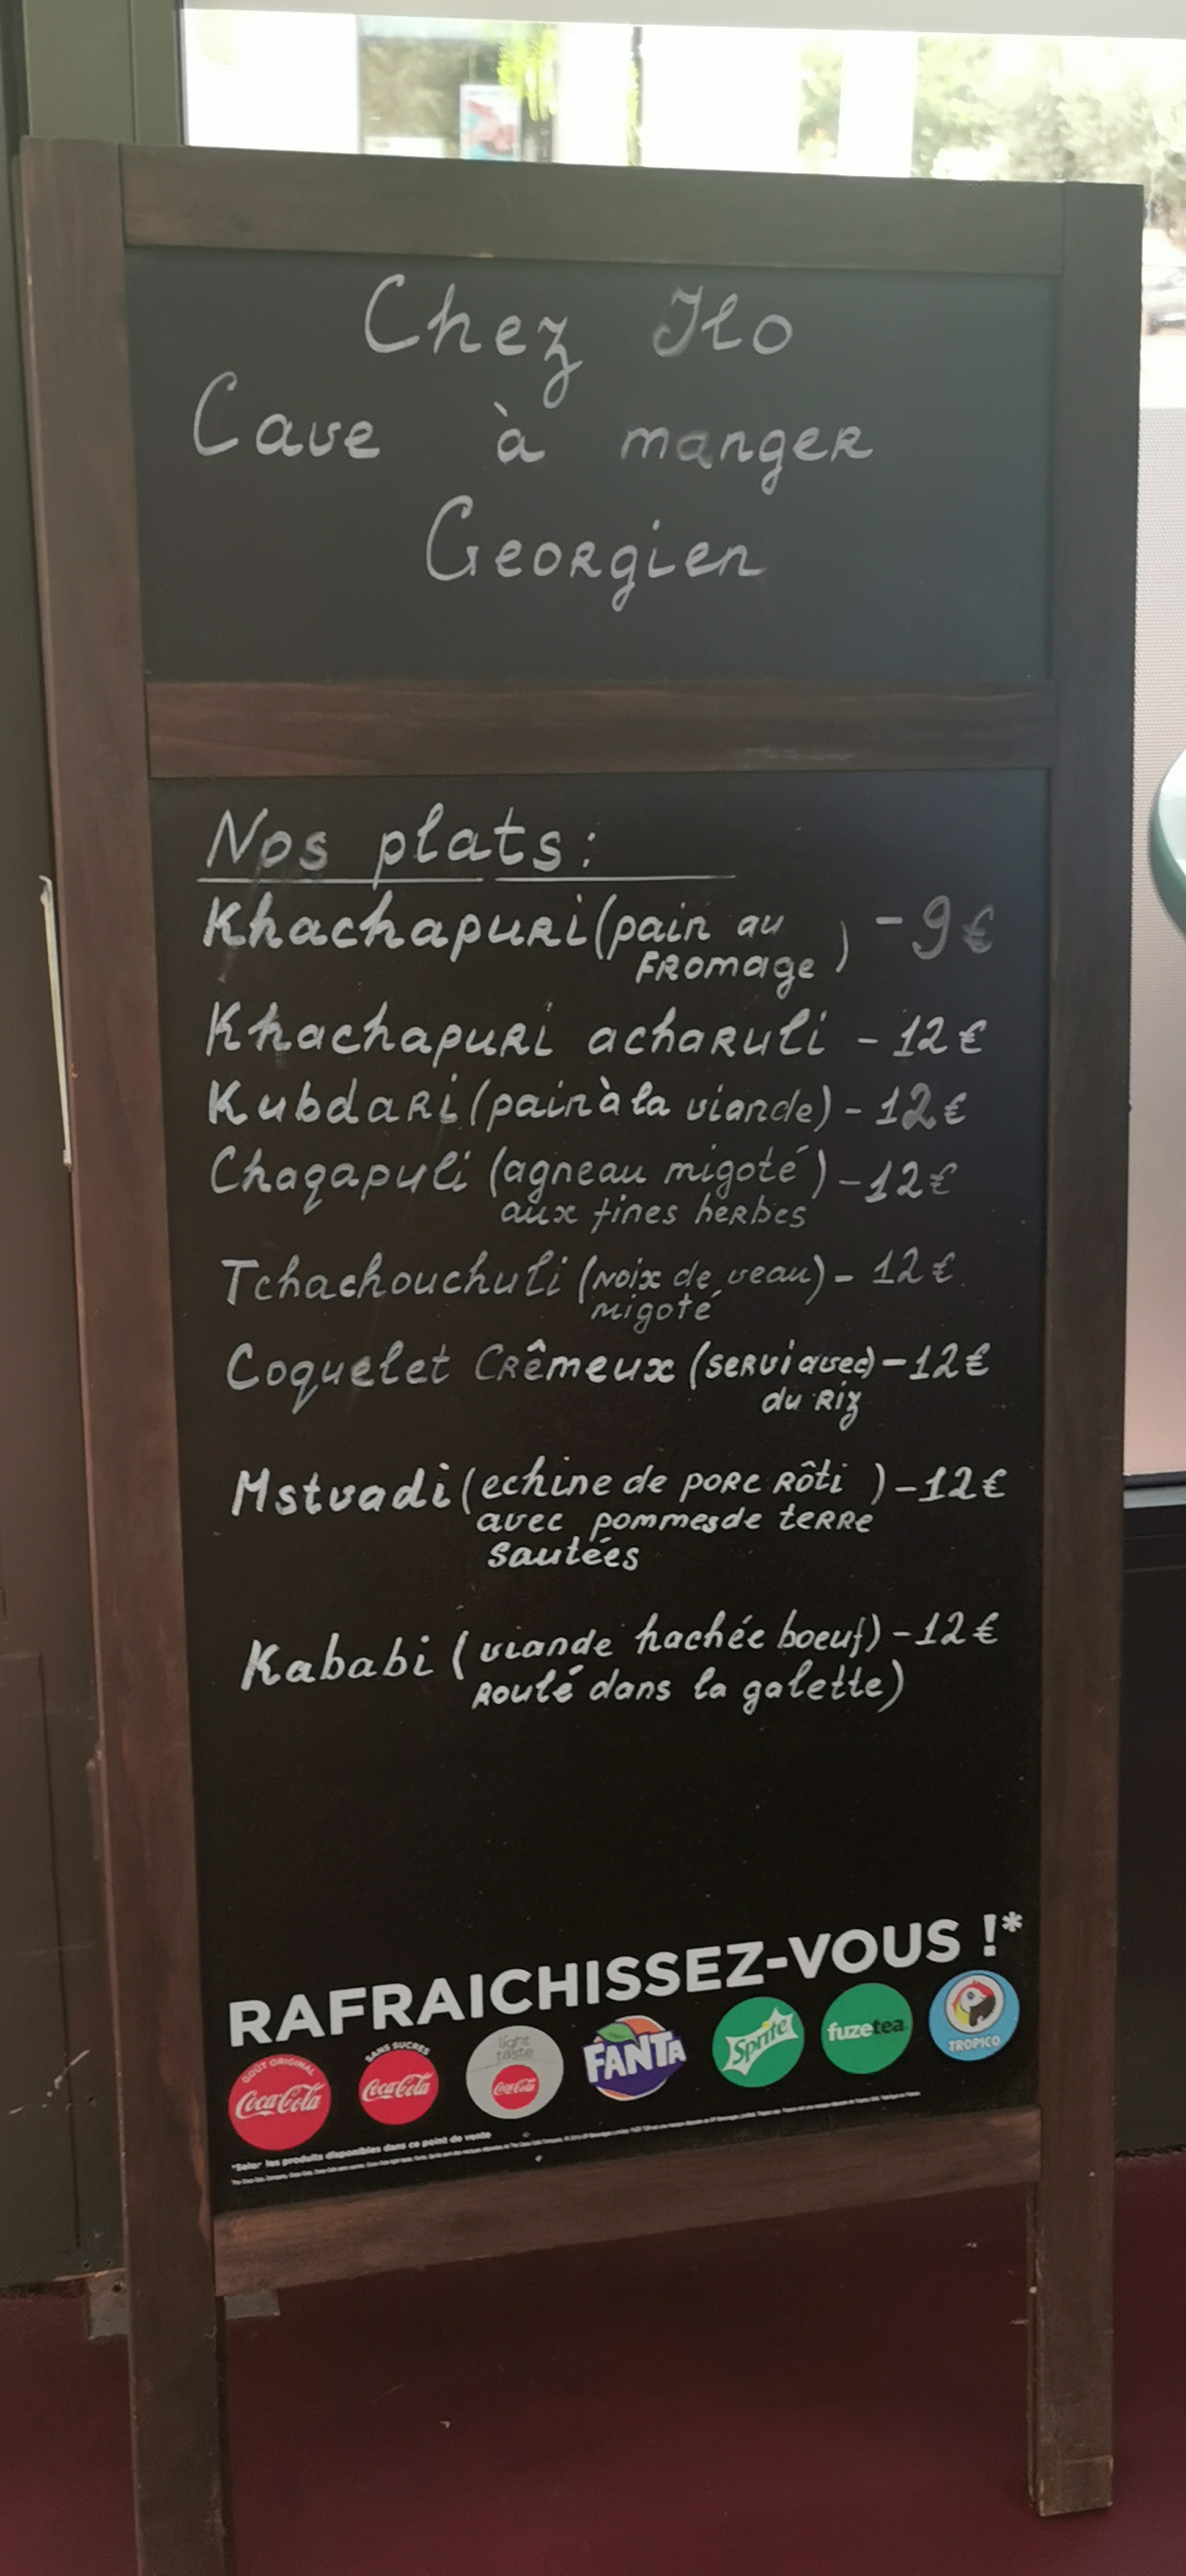 Chez Ilo
Cave à manger
Georgien
Nos plats :
Khachapuri (pain au
fromage) - 9€
Khachapuri acharuli - 12€
Kubdari (pain à la viande) - 12€
Chaqapuli (agneau migoté) - 12€
aux fines herbes
Tchachouchuli (Noix de veau) - 12€
migoté
Coquelet Crêmeux (servi avec) - 12€
du riz
Mstvadi (echine de porc rôti) - 12€
avec pommes de terre
sautées
Kababi (viande hachée boeuf) - 12€
roulé dans la galette)
RAFRAICHISSEZ-VOUS !*
GOÛT ORIGINAL
Coca-Cola
SANS SUCRES
Coca-Cola
light
taste
Coca-Cola
FANTA
Sprite
fuzetea
TROPICO
*Selon les produits disponibles dans ce point de vente